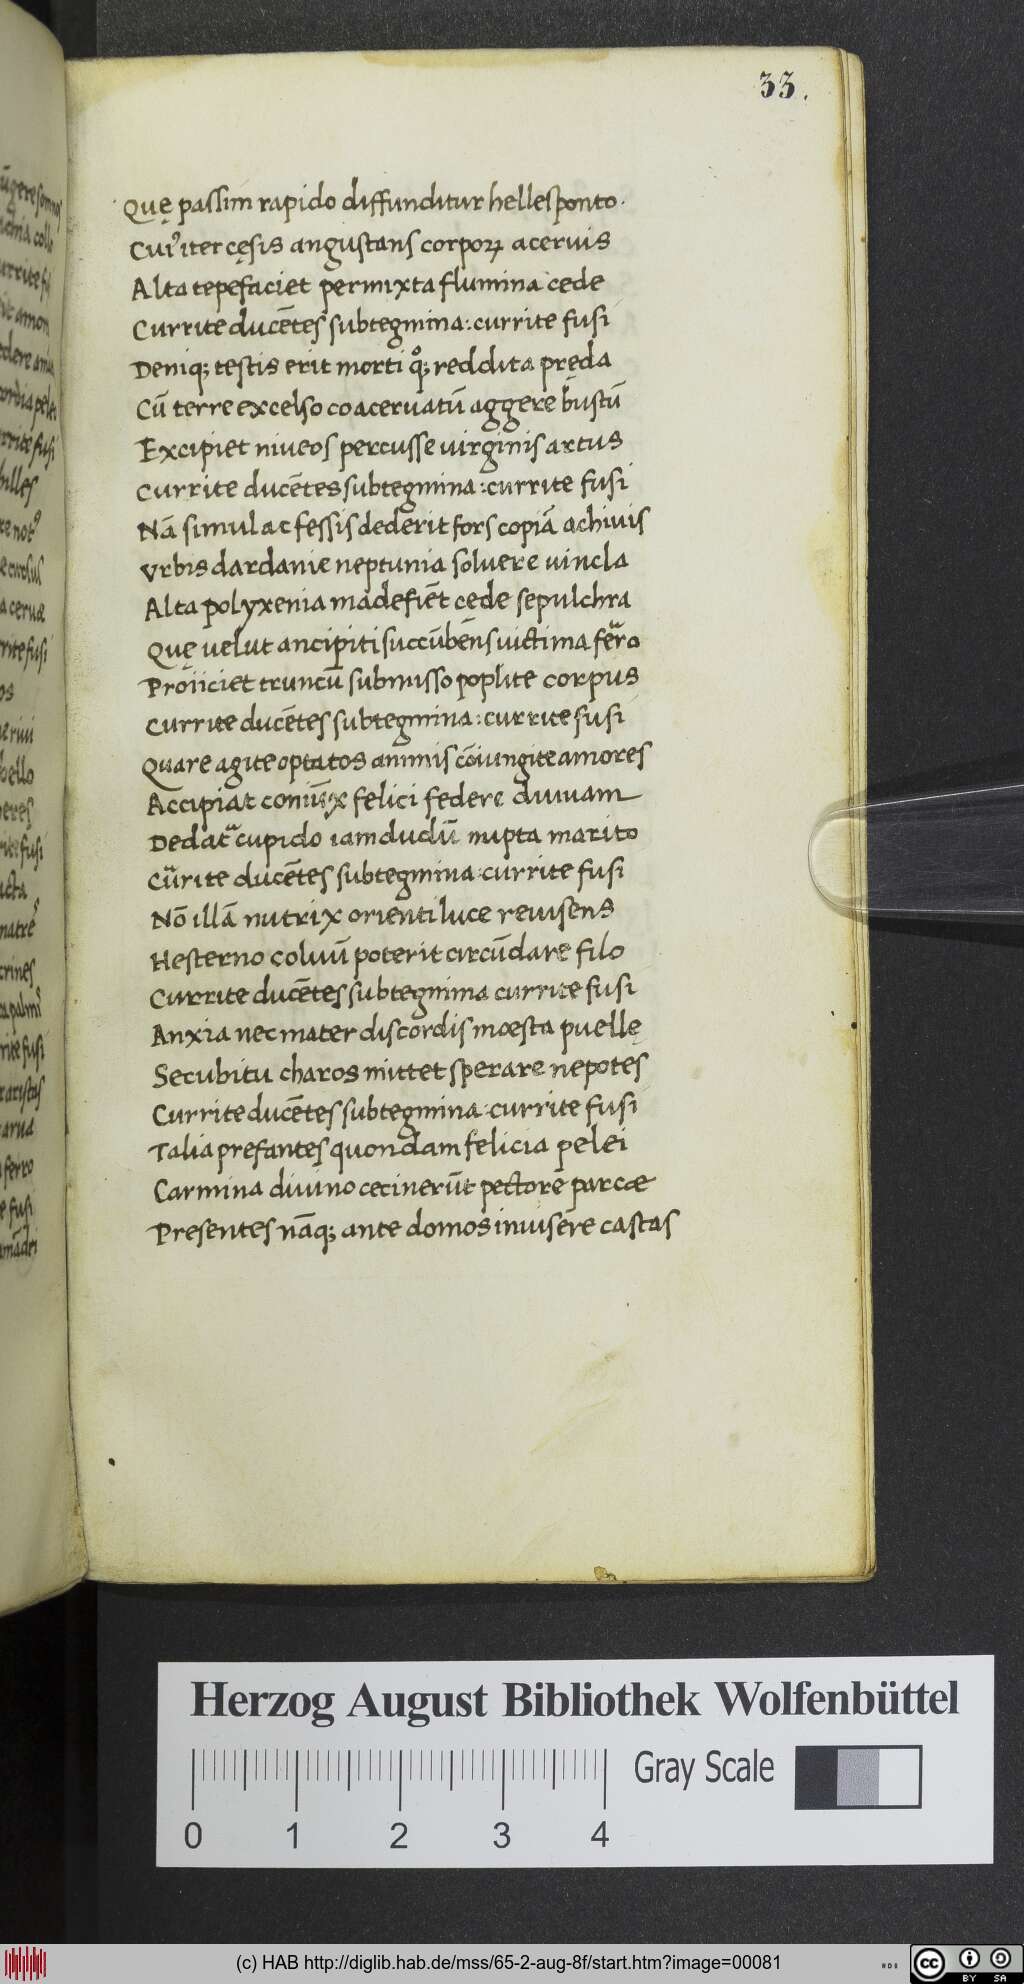 33.
Quę passim rapido diffunditur hellesponto.
Cuiꝰ iter cęsis angustans corpoꝝ acervis
Alta tepefaciet permixta flumina cede
Currite ducẽtes subtegmina: currite fusi
Deniqꝫ testis erit morti qͦꝫ reddita pręda
Cũ terre excelso coaceruatũ aggere bustũ
Excipiet niveos percusse virginis artus
Currite ducẽtes subtegmina: currite fusi
Nã simul ac fessis dederit fors copiã achivis
Vrbis dardanie neptunia solvere vincla
Alta polyxenia madefiẽt cede sepulchra
Quę velut ancipiti succũbẽns victima ferro
Proiiciet truncũ submisso poplite corpus
Currite ducẽtes subtegmina: currite fusi
Quare agite optatos animis cõiungite amores
Accipiat coniũx felici federe divvam
Dedat cupido iamdudũ nupta marito
Currite ducẽtes subtegmina: currite fusi
Nõ illã nutrix orienti luce revisens
Hesterno coluũ poterit circũdare filo
Currite ducẽtes subtegmina currite fusi
Anxia nec mater discordis mœsta puellę
Secubitu charos mittet sperare nepotes
Currite ducẽtes subtegmina: currite fusi
Talia prefantes quondam felicia pelei
Carmina divino cecinerũt pectore parcæ
Presentes nãqꝫ ante domos invisere castas
Herzog August Bibliothek Wolfenbüttel
Gray Scale
0 1 2 3 4
(c) HAB http://diglib.hab.de/mss/65-2-aug-8f/start.htm?image=00081
cc BY SA